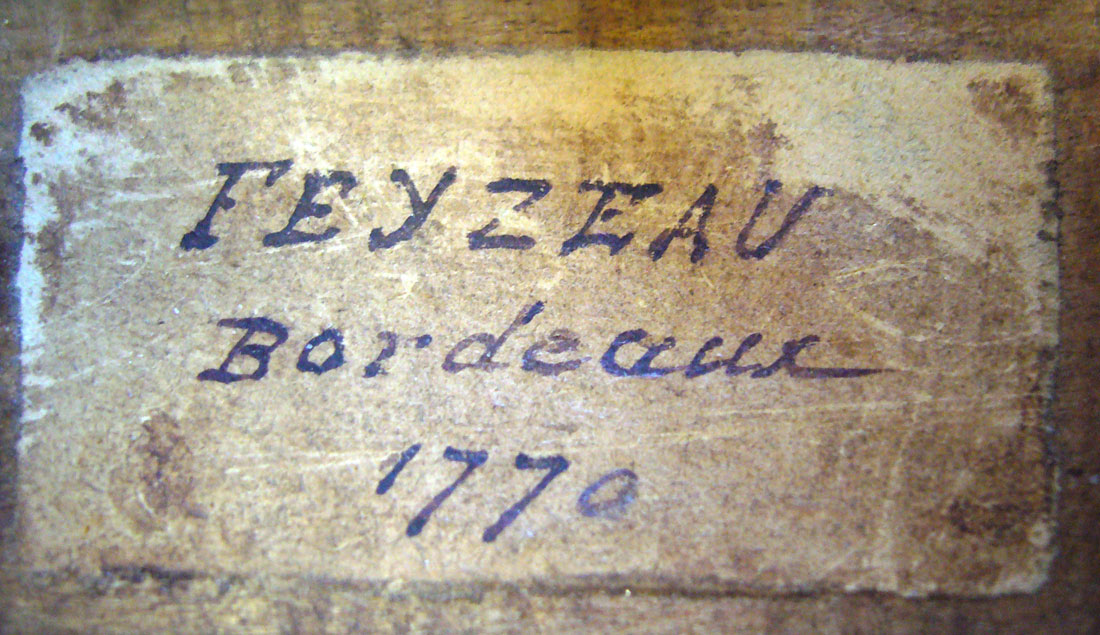 FEYZEAU
Bordeaux
1770